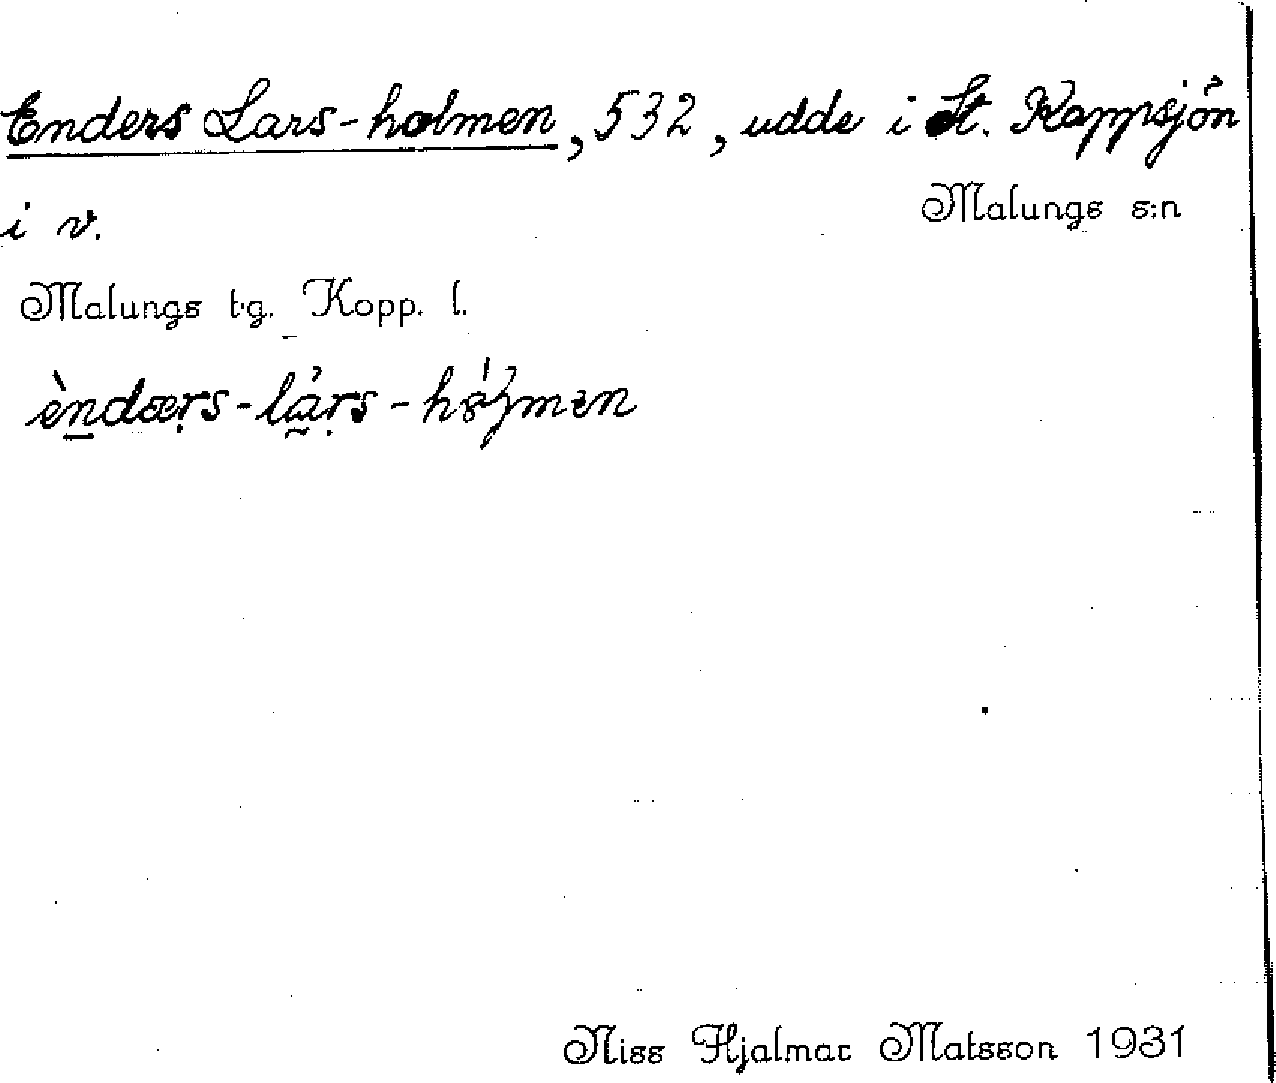 Enders Lars-holmen, 532, udde i St. Kappsjön
Malungs s:n
i v.
Malungs tg. Kopp. l.
èndærs-lårs-hòlmen
Niss Hjalmar Matsson 1931